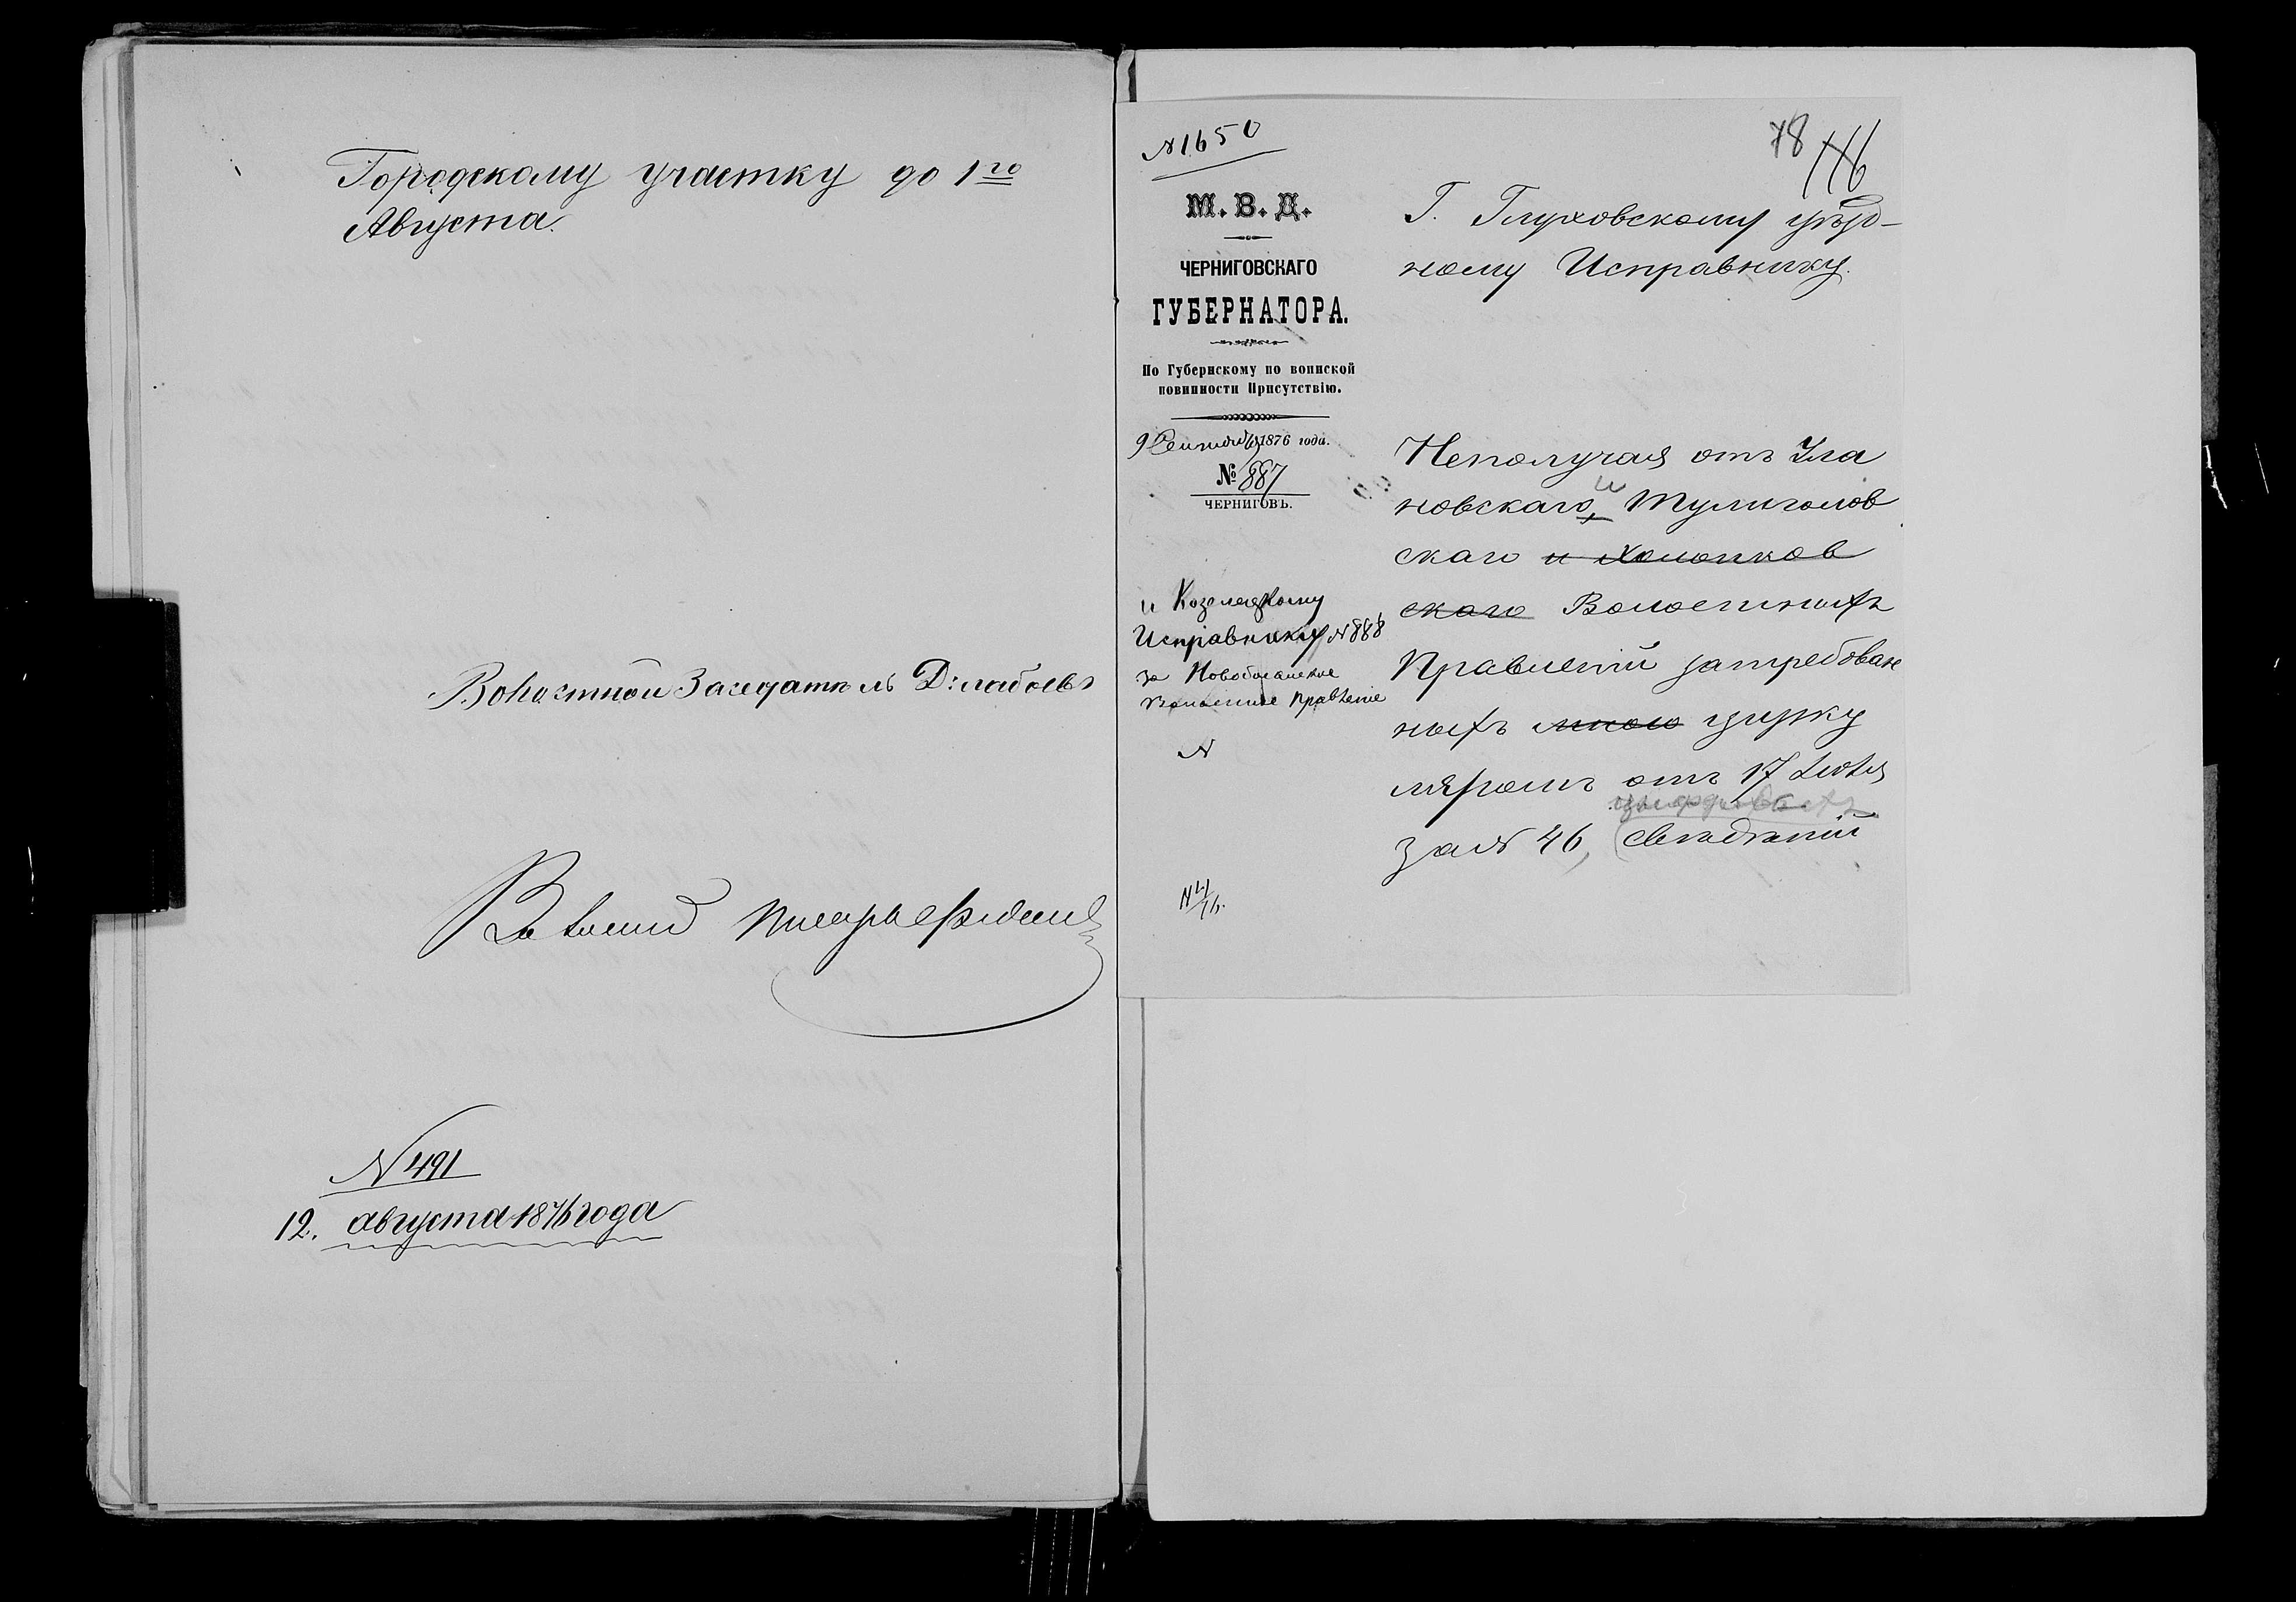 Городскому участку до 1го
Августа.
Волостной Заседатель
Волостной писарь
N 491
12. августа 1876 года
N 1650
78
116
М. В. Д.
ЧЕРНИГОВСКАГО
ГУБЕРНАТОРА.
По Губернскому по воинской
повинности Присутствію.
9 Сентября 1876 года.
№ 887
ЧЕРНИГОВЪ.
и Козелецкому
Исправнику N 888
за Новобасанское
Волостное правленіе
N
Г. Глуховскому уѣзд-
ному Исправнику.
Неполучая отъ Ула
новскаго, и Тулиголов
скаго и Холопков
скаго Волостныхъ
Правленій затребован
ныхъ мною цирку
ляромъ отъ 17 Іюля
за N 46, свѣдѣній